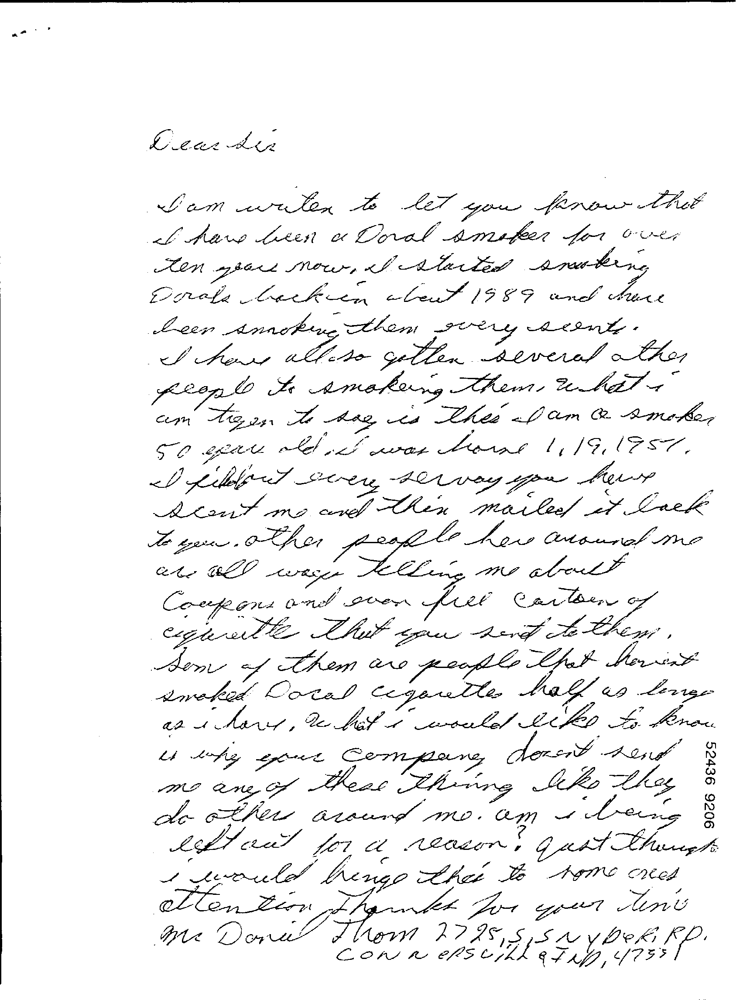 Dear Sir
I am writen to let you know that
I have been a Doral smoker for over
ten years now, I started smoking
Dorals back in about 1989 and have
been smoking them every scents.
I have allso gotten several other
people to smokeing them. What i
am tryen to say is this I am a smoker
50 years old. i was borne 1,19,1951.
I filld out every servay you have
scent me and then mailed it back
to you. other people here around me
are all ways telling me about
Coupons and even free cartoen of
cigarette that you sent to them.
Som of them are people that havient
smoked Doral cigarettes half as long
as i have. What i would like to know
is why your company dosent send
me any of these thinng like they
do others around me. am i being
left out for a reason? just though
i would bringe this to some ones
attention Thanks for your time
Mr Daniel Thom 2725, S, SNYDER, RD.
CONNERSVILLE IND, 47331
52436 9206